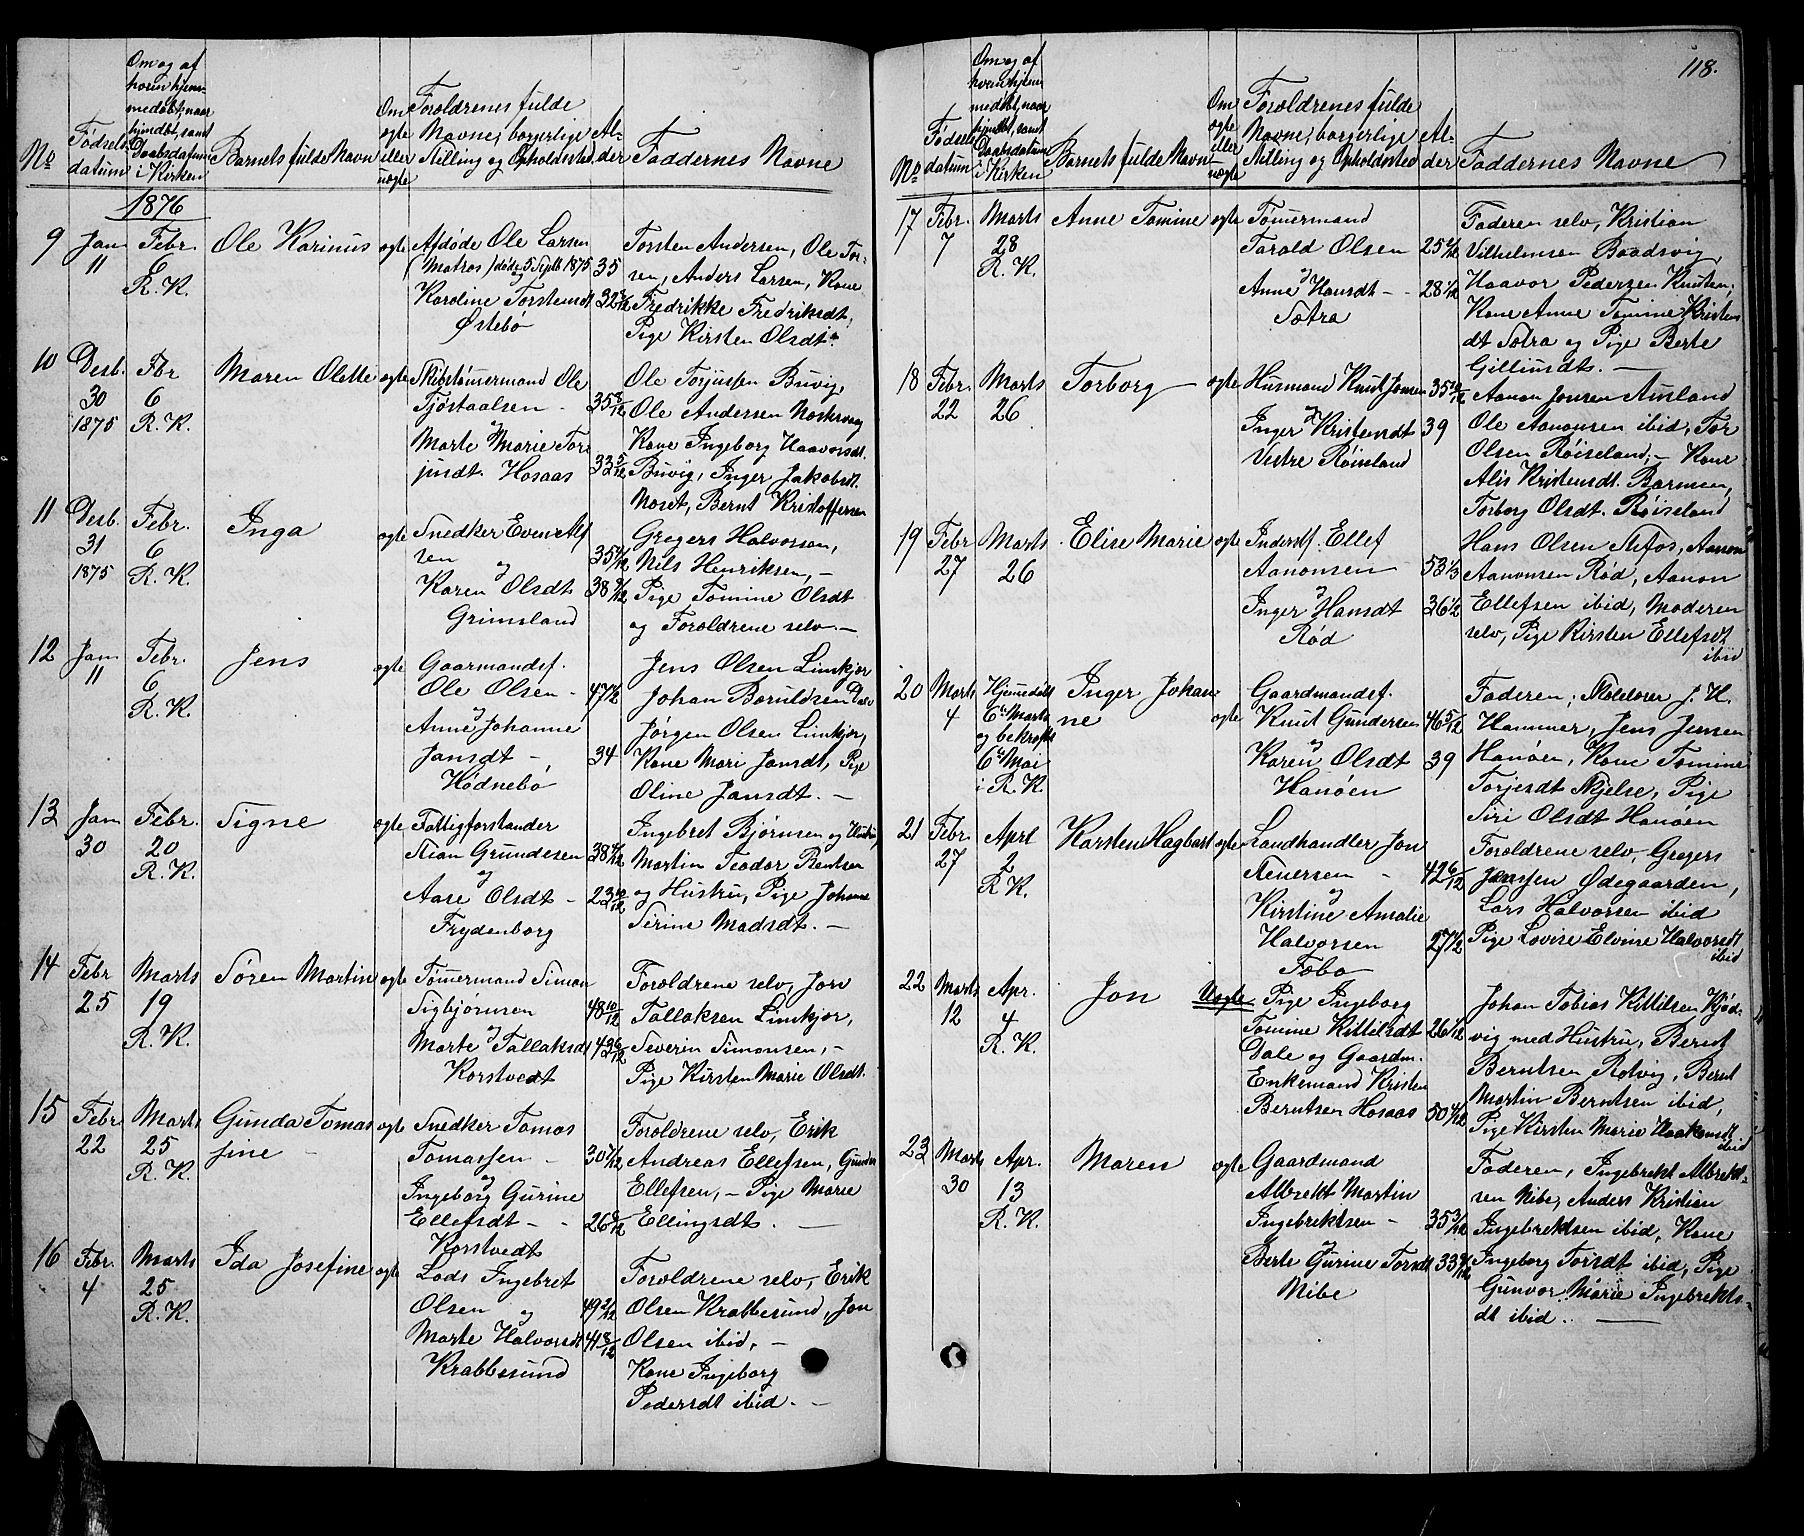 118.
No
Fødsels
datum
Om og af
hvem hjem
medøbt, naar
hjmdbt, samt
Daabsdatum
i Kirken
Barnets fulde Navn
Om
ægte
eller
uægte
Forældrenes fulde
Navne, borgerlige
Stilling og Opholdssted
Al-
der
Faddernes Navne
1876
9 Jan 11
Febr. 6 R. K.
Ole Karinus
ægte
Afdøde Ole Larsen
(Matros) døde 5 Septb 1875 35
og
Karoline Torstensdt
Østebø
Torsten Andersen, Ole Tor-
sen, Anders Larsen, Kone
Fredrikke Fredriksdt,
Pige Kirsten Olsdt.
10 Desb. 30 1875
Fbr 6 R. K.
Maren Olette
ægte
Skibstømermand Ole
Tjøstaalsen - 35 8/12
og
Marte Marie Tor
jusdt. Hosaas 33 5/12
Ole Torjussen Buvig,
Ole Andersen
Kone Ingeborg Haavorsdt.
Buvig, Inger Jakobsdt.
Noset, Bernt Kristoffersen
11 Desb. 31 1875
Febr. 6 R. K.
Inga
ægte
Snedker Even Alf
sen
og
Karen Olsdt
Grimsland
Gregers Halvorsen,
Nils Henriksen, -
Pige Tomine Olsdt
og Forældrene selv. -
12 Jan 11
Febr. 6 R. K.
Jens
ægte
Gaarmandsf.
Ole Olsen -
og
Anne Johanne
Jansdt - 34
Hødnebø
Jens Olsen Limkjær
Johan Boruldsen
Jørgen Olsen Limkjær,
Kone Mari Jansdt, Pige
Oline Jansdt. -
13 Jan 30
Febr. 20 R. K.
Signe
ægte
Fattigforstander
Stian Grundesen
og
Aase Olsdt - 23 10/12
Frydenborg
Ingebret Bjørnsen og Hustru,
Martin Teodor Bentsen
og Hustru, Pige Johanne
Serine Madsdt. -
14 Febr 25
Marts 19 R. K.
Søren Martin
ægte
Tømermand Simon
Sigbjørnsen 48 10/12
og
Marte Tallaksdt 42 6/12
Korstvedt
Forældrene selv, Jørn
Tallaksen Limkjær,
Severin Simonsen, -
Pige Kirsten Marie Olsdt.
15 Febr 22
Marts 25 R. K.
Gunda Tomas
sine -
ægte
Snedker Tomas
Tomassen - 30 7/12
og
Ingeborg Gurine
Ellefsdt -
Korstvedt
Forældrene selv, Erik
Andreas Ellefsen, Gunder
Ellefsen, - Pige Marie
Ellingsdt. -
16 Febr. 4
Marts 25 R. K.
Ida Josefine
ægte
Lods Ingebret
Olsen og 49 2/12
Marte Halvorsdt 41 8/12
Krabbesund
Forældrene selv, Erik
Olsen Krabbesund, Jon
Olsen ibid, -
Kone Ingeborg
Pedersdt ibid. -
No
Fødsels
datum
Om og af
hvem hjem
medøbt, naar
hjmdbt, samt
Daabsdatum
i Kirken
Barnets fulde Navn
Om
ægte
eller
uægte
Forældrenes fulde
Navne, borgerlige
Stilling og Opholdssted
Al-
der
Faddernes Navne
17 Febr. 7
Marts 28 R. K.
Anne Tomine
ægte
Tømermand
Tarald Olsen
og
Anne Hansdt -
Sætra
Faderen selv, Kristian
Vilhelmsen Baadsvig,
Haavor Pedersen Knuten,
Kone Anne Tomine Kristens
dt Sætra og Pige Berte
Gillundt. -
18 Febr. 22
Marts 26
Torborg -
ægte
Husmand Knut Jonsen 35 10/12
og
Inger Kristensdt 39
Vestre Røisland
Aanon Jonsen Ausland
Ole Aanonsen ibid, Tor
Olsen Røiseland, - Kone
Alis Kristensdt. Barmen,
Torborg Olsdt. Røiseland
19 Febr 27
Marts 26
Elise Marie
ægte
Inderstf. Ellef
Aanonsen
og
Inger Hansdt
Rød
Hans Olsen Stifos, Aanon
Aanonsen Rød, Aanon
Ellefsen ibid, Moderen
selv, Pige Kirsten Ellefsdt
ibid
20 Marts 4
Hjemdøbt
6te Marts
og bekræft
6te Mai
i R. K.
Inger Johan
ne
ægte
Gaardmandsf.
Knut Gundersen 46 5/12
og
Karen Olsdt 39
Hanøen
Faderen, Skolelærer J. H.
Hammer, Jens Jensen
Hanøen, Kone Tomine
Torjesdt Skjelse, Pige
Siri Olsdt Hanøen
21 Febr. 27
Aprl 2 R. K.
Karsten Hagbart
ægte
Landhandler Jon
Stenersen - 42 6/12
og
Kirstine Amalie
Halvorsen
Tøbo
Forældrene selv, Gregers
Jenssen Ødegaarden,
Lars Halvorsen ibid
Pige Lovise Elvine Halvorsdt
ibid
22 Marts 12
Apr. 4 R. K.
Jon
Uægte
Pige Ingeborg
Tomine Kittilsdt
Dale og Gaardm.
Enkemand Kristen
Berntsen Hosaas
Johan Tobias Kittilsen Kjød-
vig med Hustru, Berent
Berntsen Rotvig, Bernt
Martin Berntsen ibid,
Pige Kirsten Marie Haakonsdt
ibid
23 Marts 30
Apr. 13 R. K.
Maren
ægte
Gaardmand
Albrekt Martin
Ingebrektsen - 35 3/12
Berte Gurine Torsdt
Nibe
Faderen, Ingebrekt Albrekt-
sen Nibe, Anders Kristian
Ingebrektsen ibid, Kone
Ingeborg Torsdt ibid, Pige
Gunvor Marie Ingebrekts-
dt ibid. -